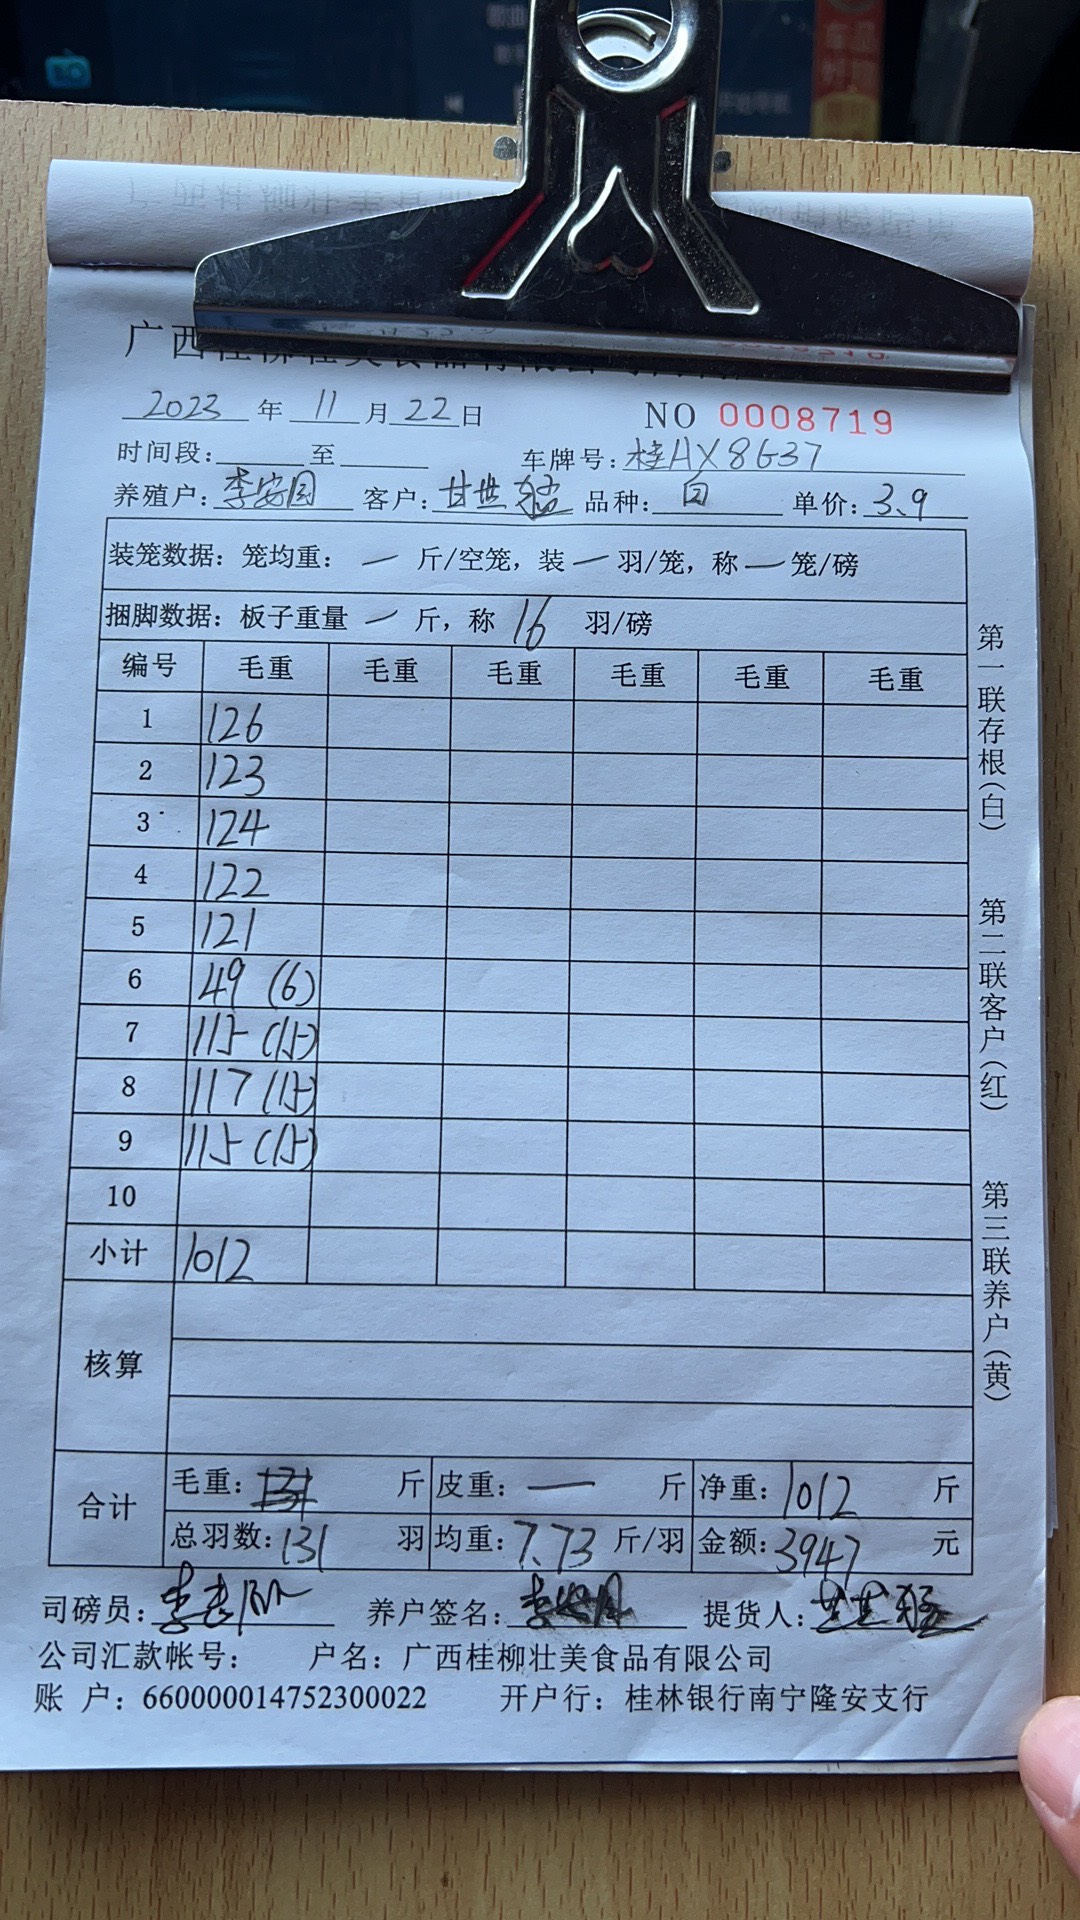 广西桂柳壮美食品有限公司
2023 年 11 月 22 日 NO 0008719
时间段: 至 车牌号: 桂AX8G37
养殖户: 李安园 客户: 甘世猛 品种: 白 单价: 3.9
装笼数据: 笼均重: 一 斤/空笼, 装 一 羽/笼, 称 一 笼/磅
捆脚数据: 板子重量 一 斤, 称 16 羽/磅
编号 毛重 毛重 毛重 毛重 毛重 毛重
1 126
2 123
3 124
4 122
5 121
6 49 (6)
7 115 (15)
8 117 (15)
9 115 (15)
10
小计 1012
核算
合计
毛重: 131 斤 皮重: 一 斤 净重: 1012 斤
总羽数: 131 羽 均重: 7.73 斤/羽 金额: 3947 元
司磅员: 养户签名: 李安园 提货人: 甘世猛
公司汇款帐号: 户名: 广西桂柳壮美食品有限公司
账 户: 660000014752300022 开户行: 桂林银行南宁隆安支行
第一联存根(白)
第二联客户(红)
第三联养户(黄)